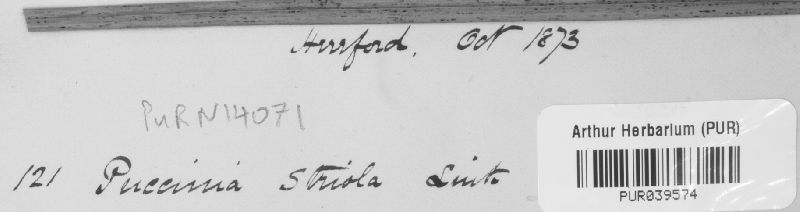 Hereford, Oct 1873
PURN14071
Arthur Herbarium (PUR)
121 Puccinia striola Link
PUR039574